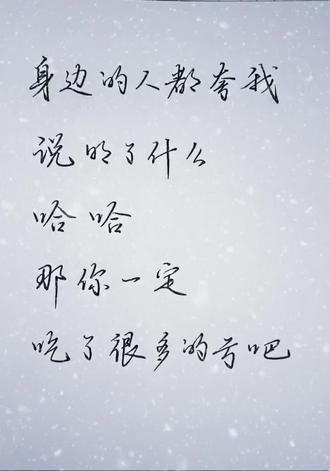 身边的人都夸我
说明了什么
哈哈
那你一定
吃了很多的亏吧